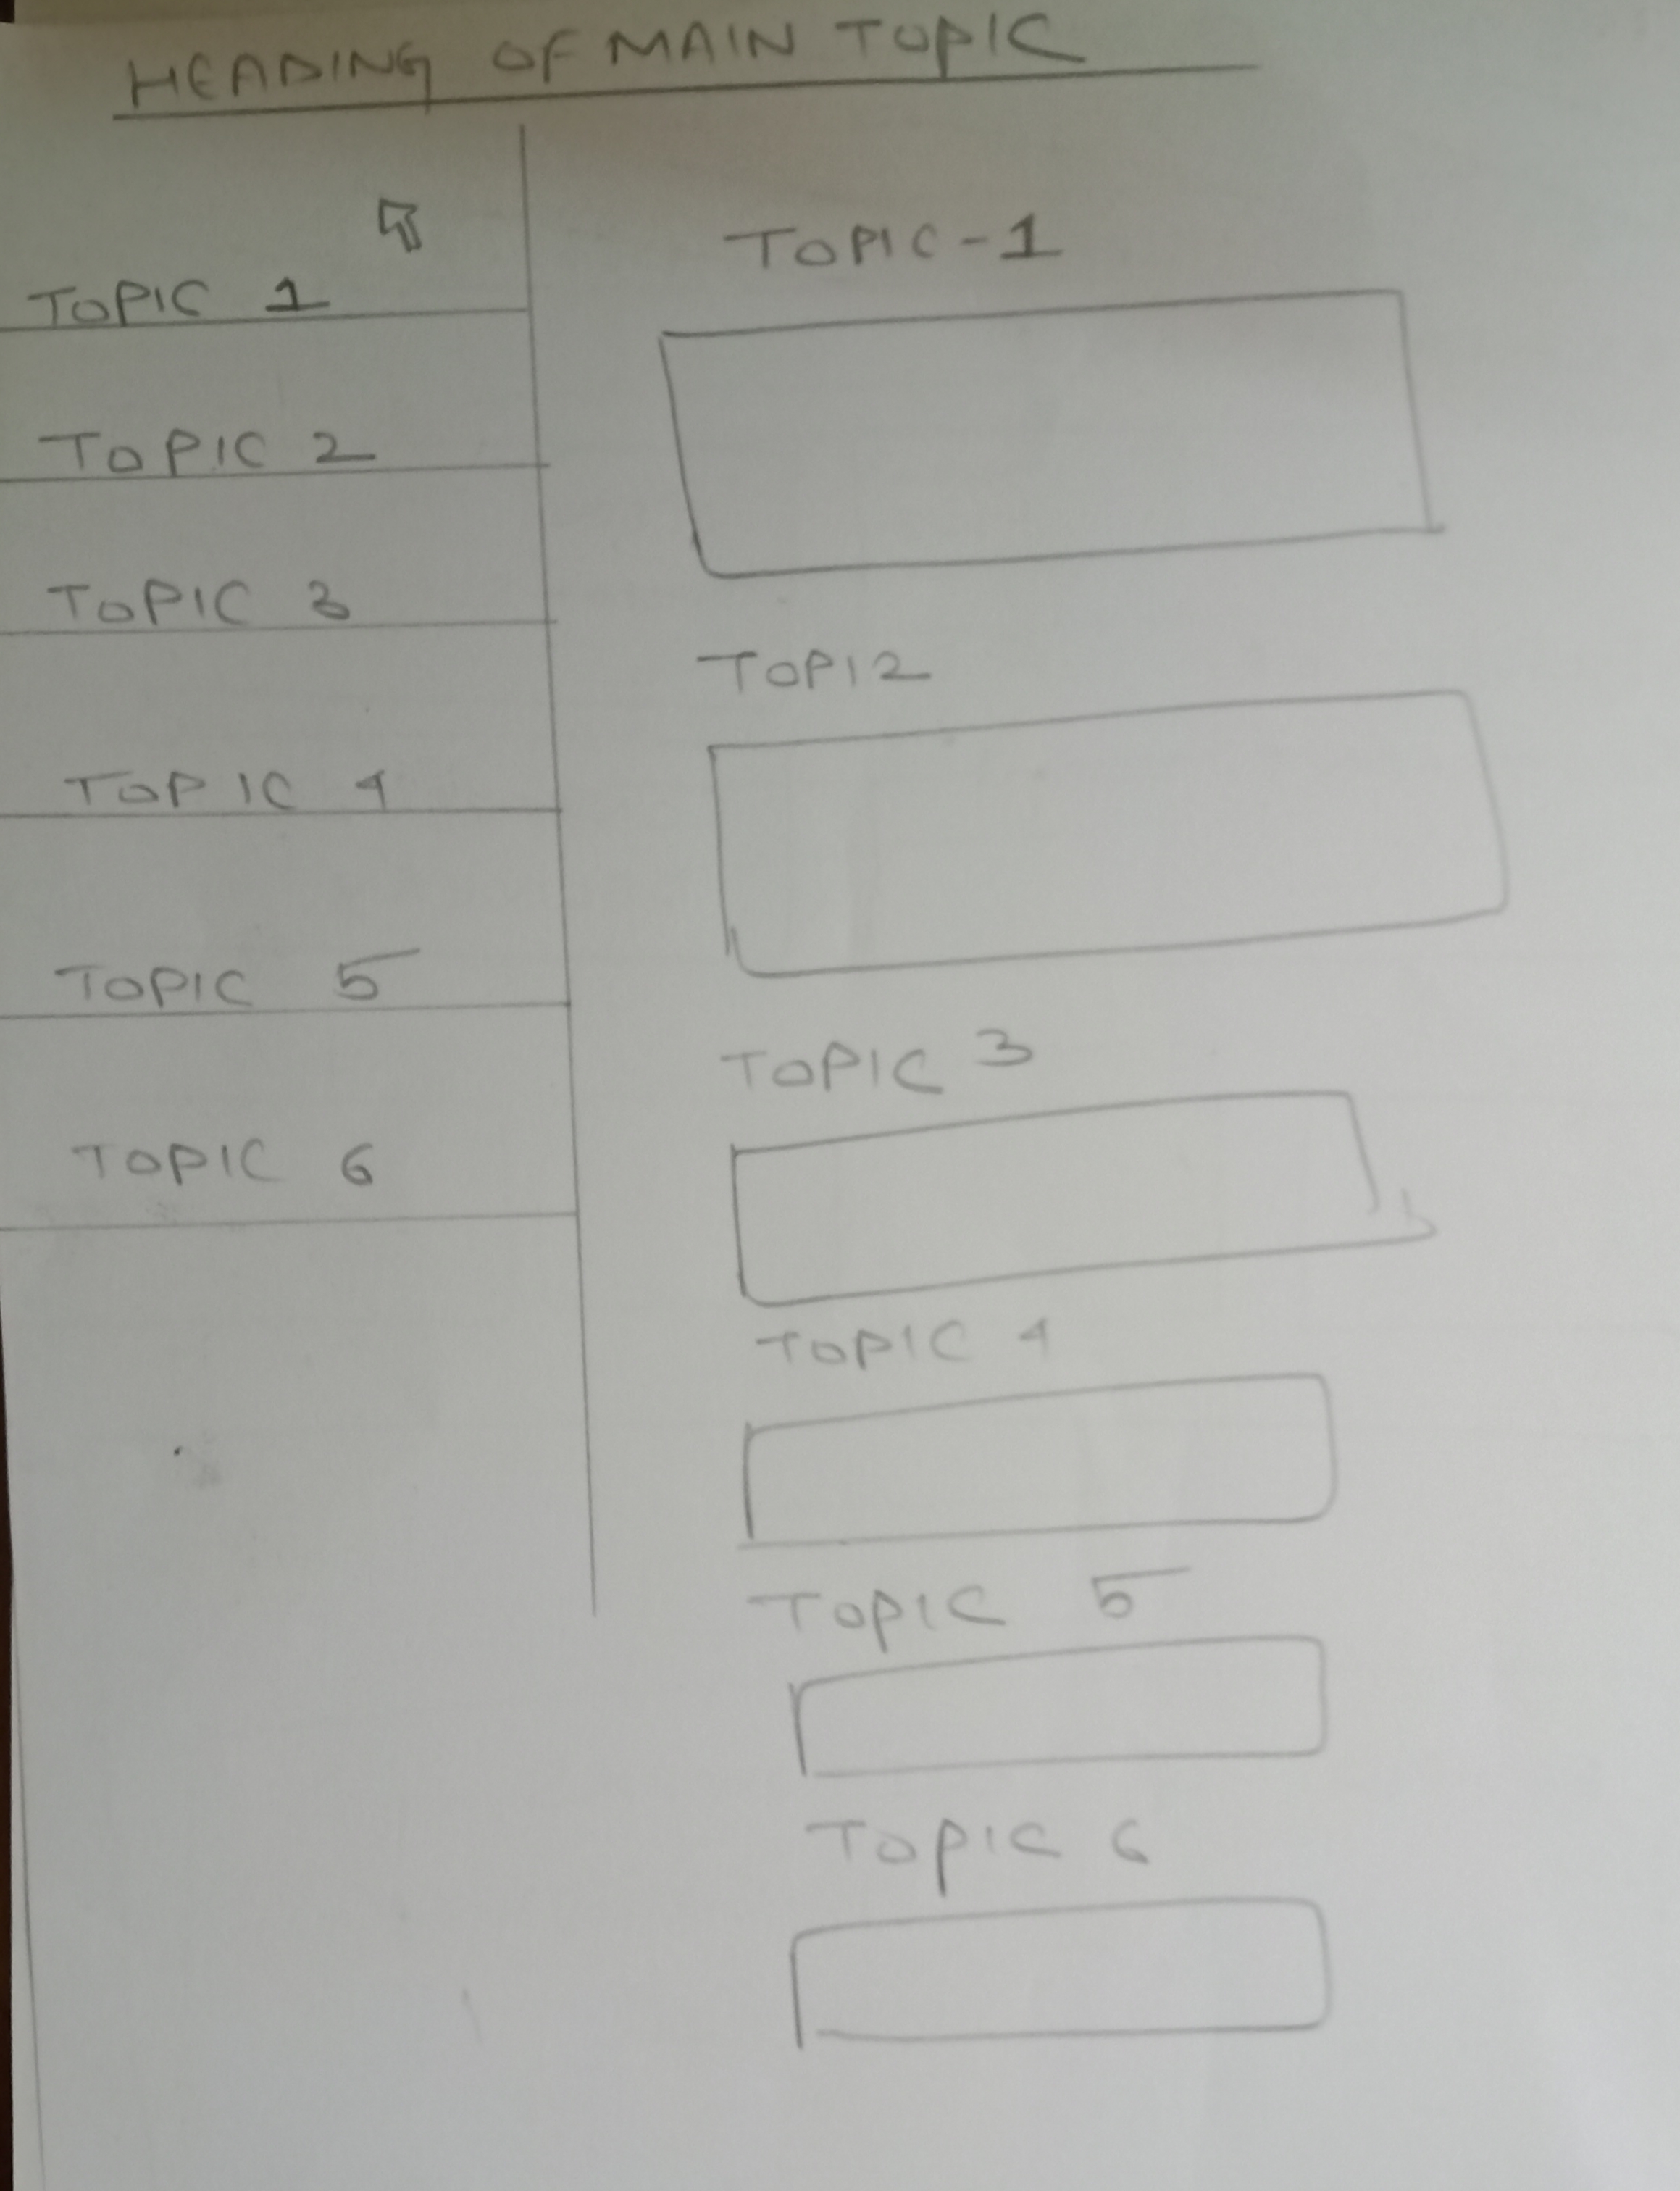 HEADING OF MAIN TOPIC
TOPIC 1
TOPIC 2
TOPIC 3
TOPIC 4
TOPIC 5
TOPIC 6
TOPIC-1
TOPI2
TOPIC 3
TOPIC 4
TOPIC 5
TOPIC 6